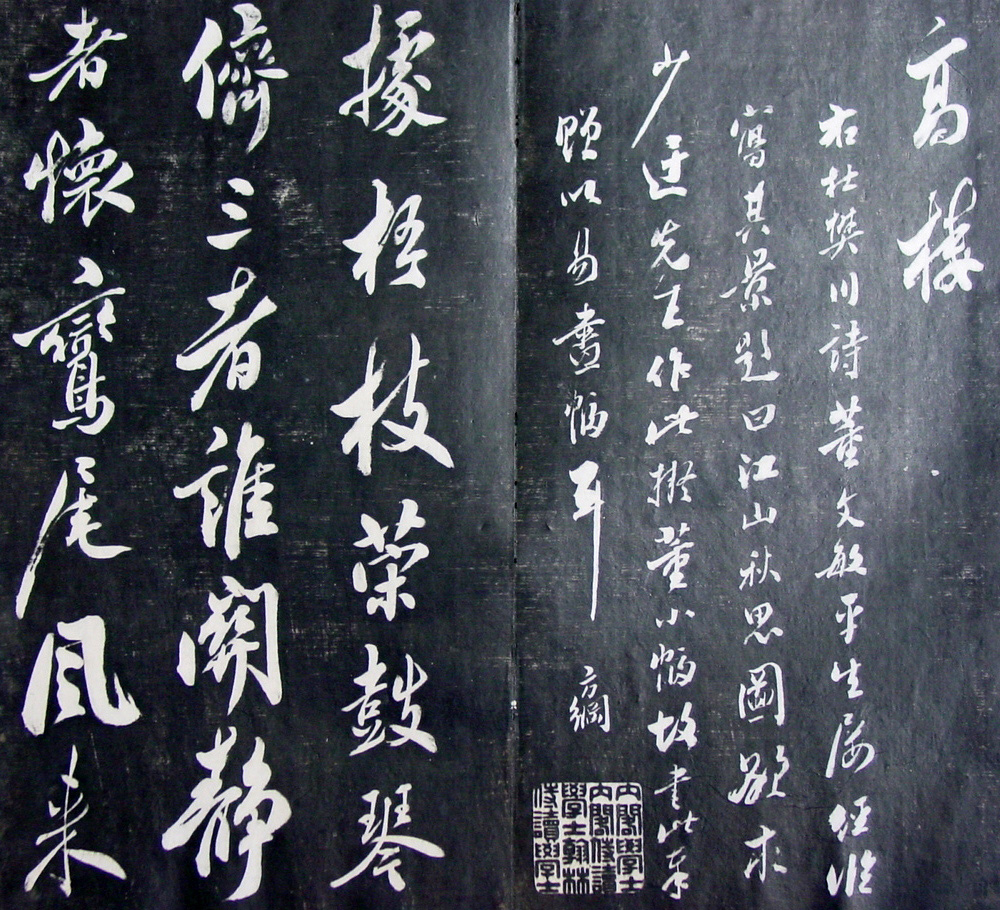 高樓
右杜樊川詩董文敏平生屢經臨
寫其景題曰江山秋思圖欲求
少迂先生作此擬董小幅故書此奉
贈以易畫幅耳
方綱
內閣學士
內閣侍讀
學士翰林
侍讀學士
據梧枝榮鼓琴
儕三者誰關靜
者懷鸞尾風來